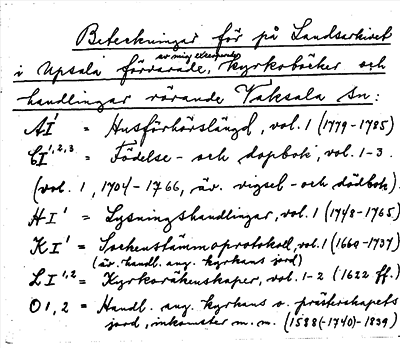 Beteckningar för på Landsarkivet
i Upsala förvarade, av mig excerperade kyrkoböcker och
handlingar rörande Vaksala sn:
AI¹ = Husförhörslängd, vol. 1 (1779-1785)
CI¹,²,³ = Födelse- och dopbok, vol. 1-3.
(vol. 1, 1704-1766, äv. vigsel- och dödbok).
HI¹ = Lysningshandlingar, vol. 1 (1748-1765)
KI¹ = Sockenstämmoprotokoll, vol. 1 (1660-1737)
(äv. handl. ang. kyrkans jord)
LI¹,² = Kyrkoräkenskaper, vol. 1-2 (1622 ff.)
O 1, 2 = Handl. ang. kyrkans o. prästerskapets
jord, inkomster m. m. (1588(-1740)-1839)